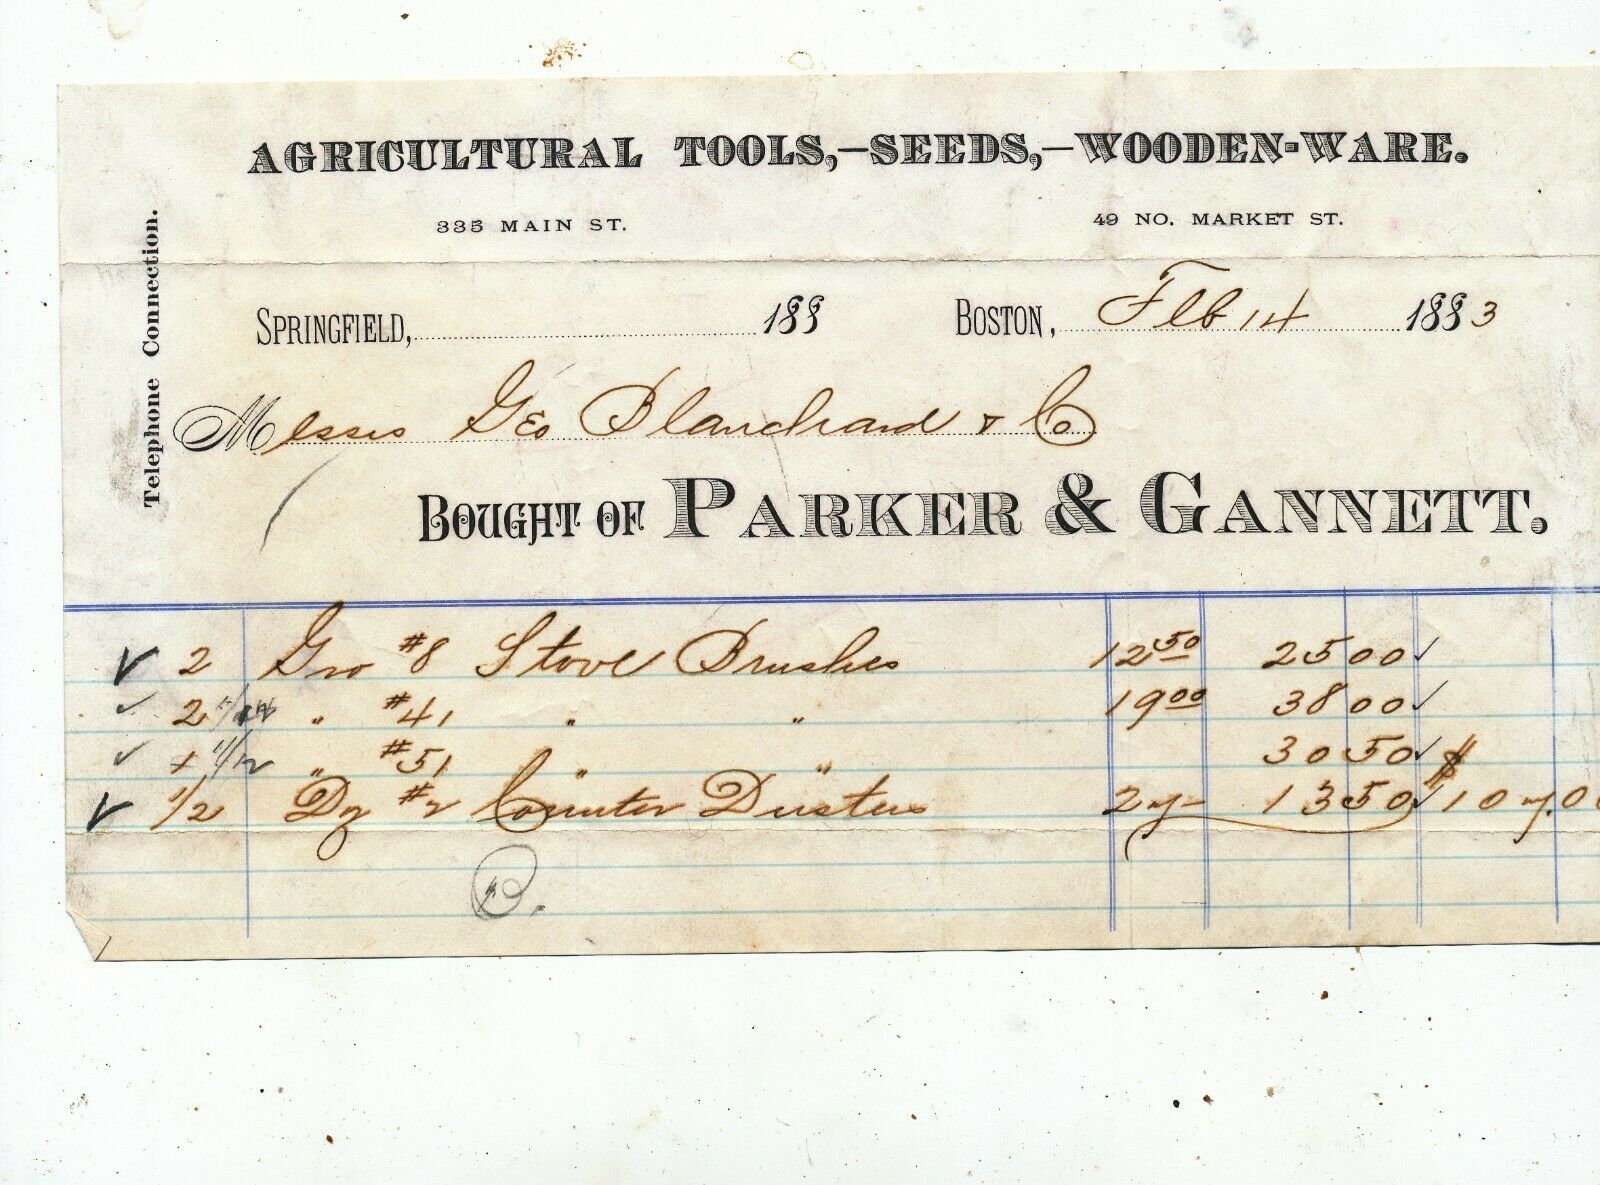 AGRICULTURAL TOOLS,—SEEDS,—WOODEN-WARE.
335 MAIN ST. 49 NO. MARKET ST.
Telephone Connection.
SPRINGFIELD, 188 BOSTON, Feb 14 1883
Messrs Geo Blanchard & Co
BOUGHT OF PARKER & GANNETT.
2 Gro #8 Stove Brushes 12 50 25 00
2 " #41 " " 19 00 38 00
1 " #51 " " 30 50
1/2 Dz #2 Counter Dusters 27 13 50 $107.00